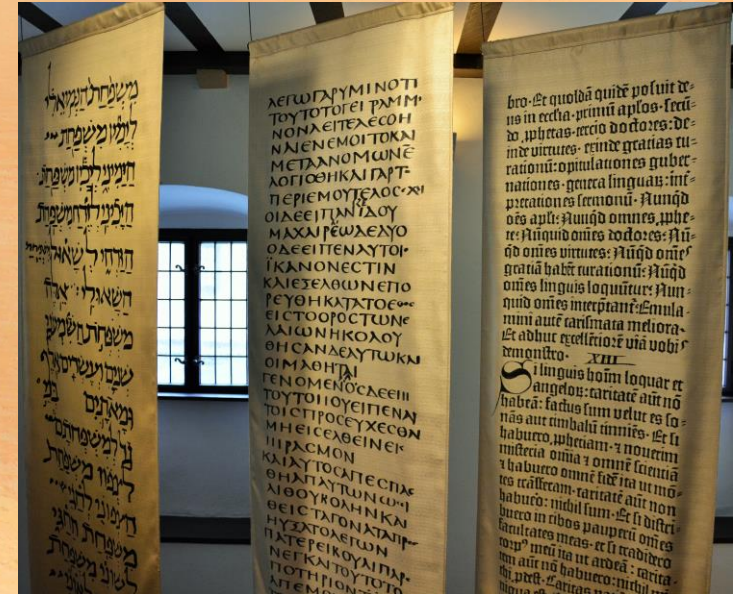 משפחת הנמואלי
לימין משפחת
הימיני ליכין משפחת
היכיני לזרח משפחת
הזרחי לשאול משפחת
השאולי אלה
משפחת השמעני
שנים ועשרים אלף
ומאתים בני
גד למשפחתם
לצפון משפחת
הצפוני לחגי
משפחת החגי
לשוני משפחת
ΛΕΓΩΓΑΡΥΜΙΝΟΤΙ
ΤΟΥΤΟΤΟΓΕΓΡΑΜΜ·
ΝΟΝΔΕΙΤΕΛΕCΘΗ
ΝΑΙΕΝΕΜΟΙΤΟΚΑΙ
ΜΕΤΑΑΝΟΜΩΝΕ
ΛΟΓΙCΘΗΚΑΙΓΑΡΤ
ΠΕΡΙΕΜΟΥΤΕΛΟC·ΕΧΙ
ΟΙΔΕΕΙΠΑΝΪΔΟΥ
ΜΑΧΑΙΡΕΩΔΕΔΥΟ
ΟΔΕΕΙΠΕΝΑΥΤΟΙ·
ΪΚΑΝΟΝΕCΤΙΝ
ΚΑΙΕΞΕΛΘΩΝΕΠΟ
ΡΕΥΘΗΚΑΤΑΤΟΕΘΟC
ΕΙCΤΟΟΡΟCΤΩΝΕ
ΛΑΙΩΝΗΚΟΛΟΥ
ΘΗCΑΝΔΕΑΥΤΩΚΑΙ
ΟΙΜΑΘΗΤΑΙ
ΓΕΝΟΜΕΝΟCΔΕΕΠΙ
ΤΟΥΤΟΠΟΥΕΙΠΕΝΑΥ
ΤΟΙCΠΡΟCΕΥΧΕCΘΕ
ΜΗΕΙCΕΛΘΕΙΝΕΙC
ΠΙΡΑCΜΟΝ
ΚΑΙΑΥΤΟCΑΠΕCΠΑC
ΘΗΑΠΑΥΤΩΝΩCΙ
ΛΙΘΟΥΒΟΛΗΝΚΑΙ
ΘΕΙCΤΑΓΟΝΑΤΑΠΡ
ΗΥΞΑΤΟΛΕΓΩΝ
ΠΑΤΕΡΕΙΒΟΥΛΙΠΑΡ
ΝΕΓΚΑΙΤΟΥΤΟΤΟ
ΠΟΤΗΡΙΟΝ
ΑΠΕΜΟΥ
bro·Et quosdā quidē posuit de-
us in ecclesia·primū apłos·secū-
do ꝓphetas·tercio doctores: de-
inde virtutes·exinde gracias cu-
rationū: opitulationes guber-
nationes·genera linguaꝝ: int̄-
pretationes sermonū·Nunqd
oēs apłi: Nunqd omnes ꝓphe-
te: Nunquid omēs doctores: Nū-
qd omēs virtutes: Nūqd omēs
gratiā habēt curationū: Nūqd
omēs linguis loquūtur: Nun-
quid omēs interp̄tant: Emula-
mini autē carismata meliora·
Et adhuc excellētiorē viā vobis
demonstro· XIII
Si linguis hoīm loquar et
angeloꝝ: caritatē aūt nō
habeā: factus sum velut es so-
nās aut cimbalū tinniēs·Et si
habuero ꝓpheciam·ꝛ noverim
misteria omīa ꝛ omnē scientiā
ꝛ habuero omnē fidē ita ut mō-
tes trāsferam·caritatē aūt non
habuero: nichil sum·Et si distri-
buero in cibos pauperū omēs
facultates meas·et si tradidero
corpꝰ meū ita ut ardeā: carita-
tem aūt nō habuero: nichil mi-
chi ꝓdest·Caritas